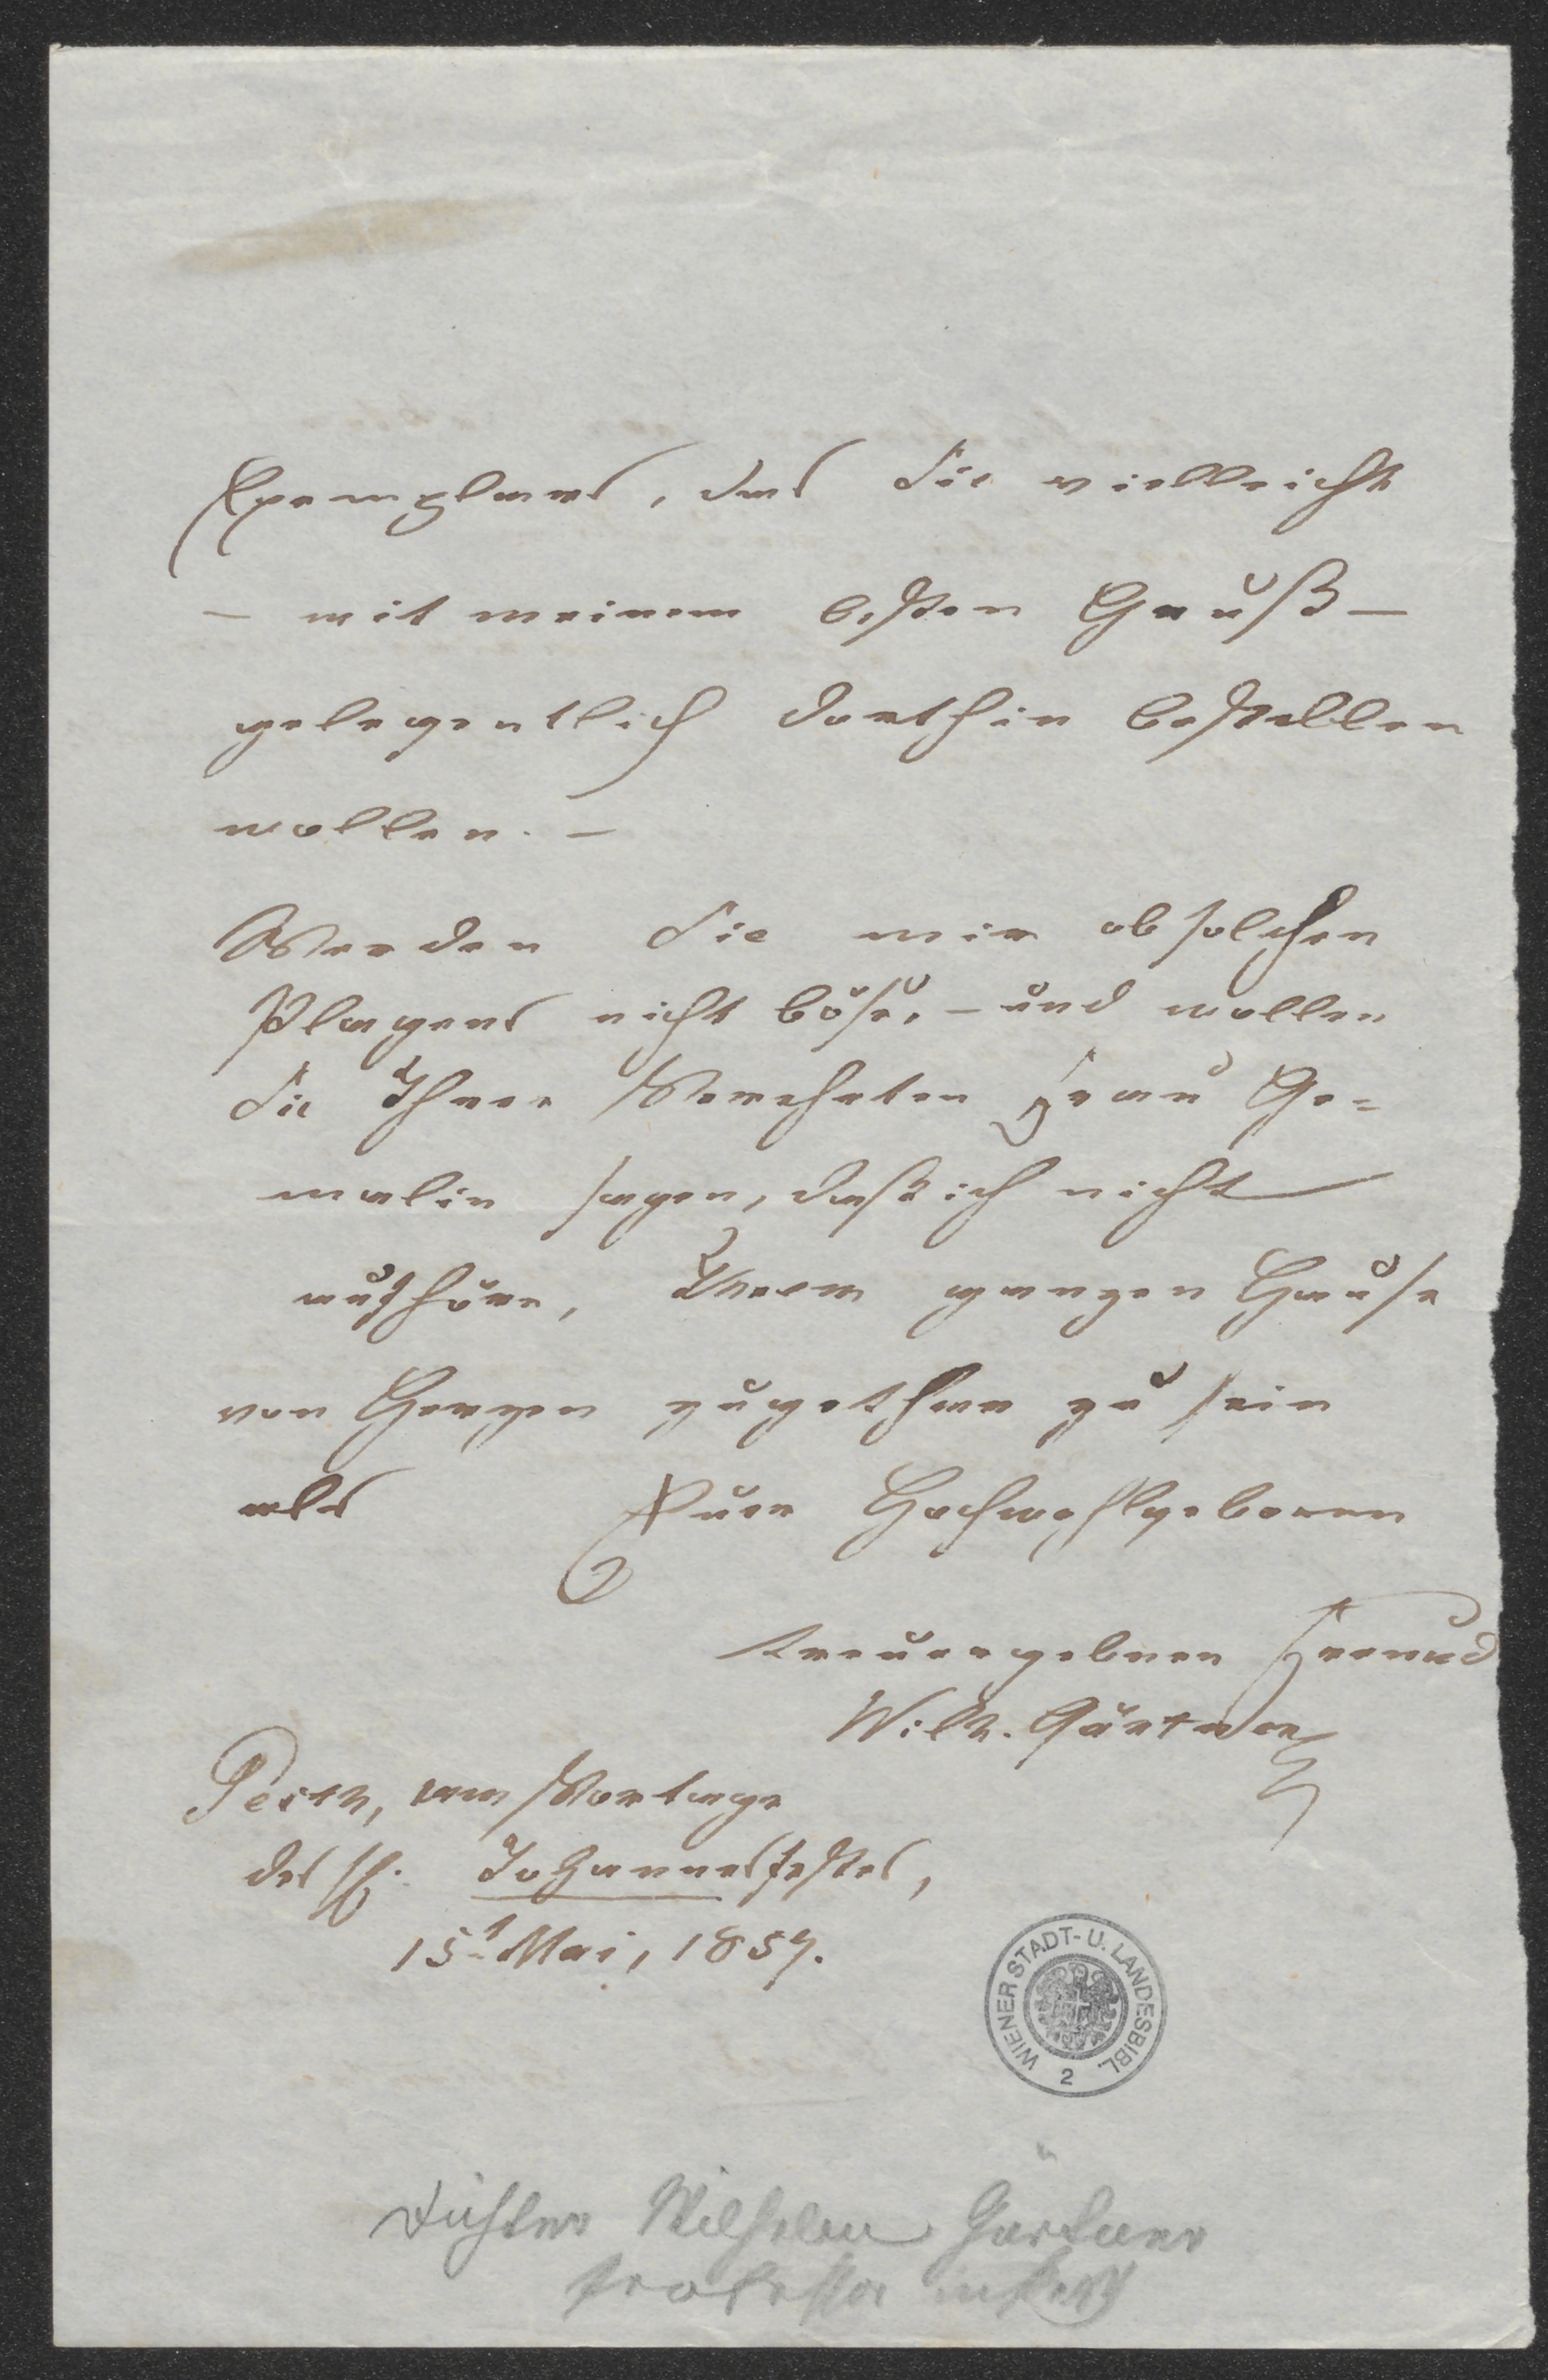 Exemplares, das Sie vielleicht
– mit meinem besten Gruß –
gelegentlich dorthin bestellen
wollen. –
Werden Sie mir ob solchen
Plagens nicht böse, – und wollen
Sie Ihrer Verehrten Frau Ge=
malin sagen, daß ich nicht
aufhöre, Ihrem ganzen Hause
von Herzen zugethan zu sein
als Euer Hochwohlgeboren
treuergebner Freund
Wilh. Gärtner
Pesth, am Vortage
des hl. Johannesfestes,
15t Mai, 1857.
WIENER STADT- U. LANDESBIBL.
2
Dichter Wilhelm Gärtner
Professor in Pest